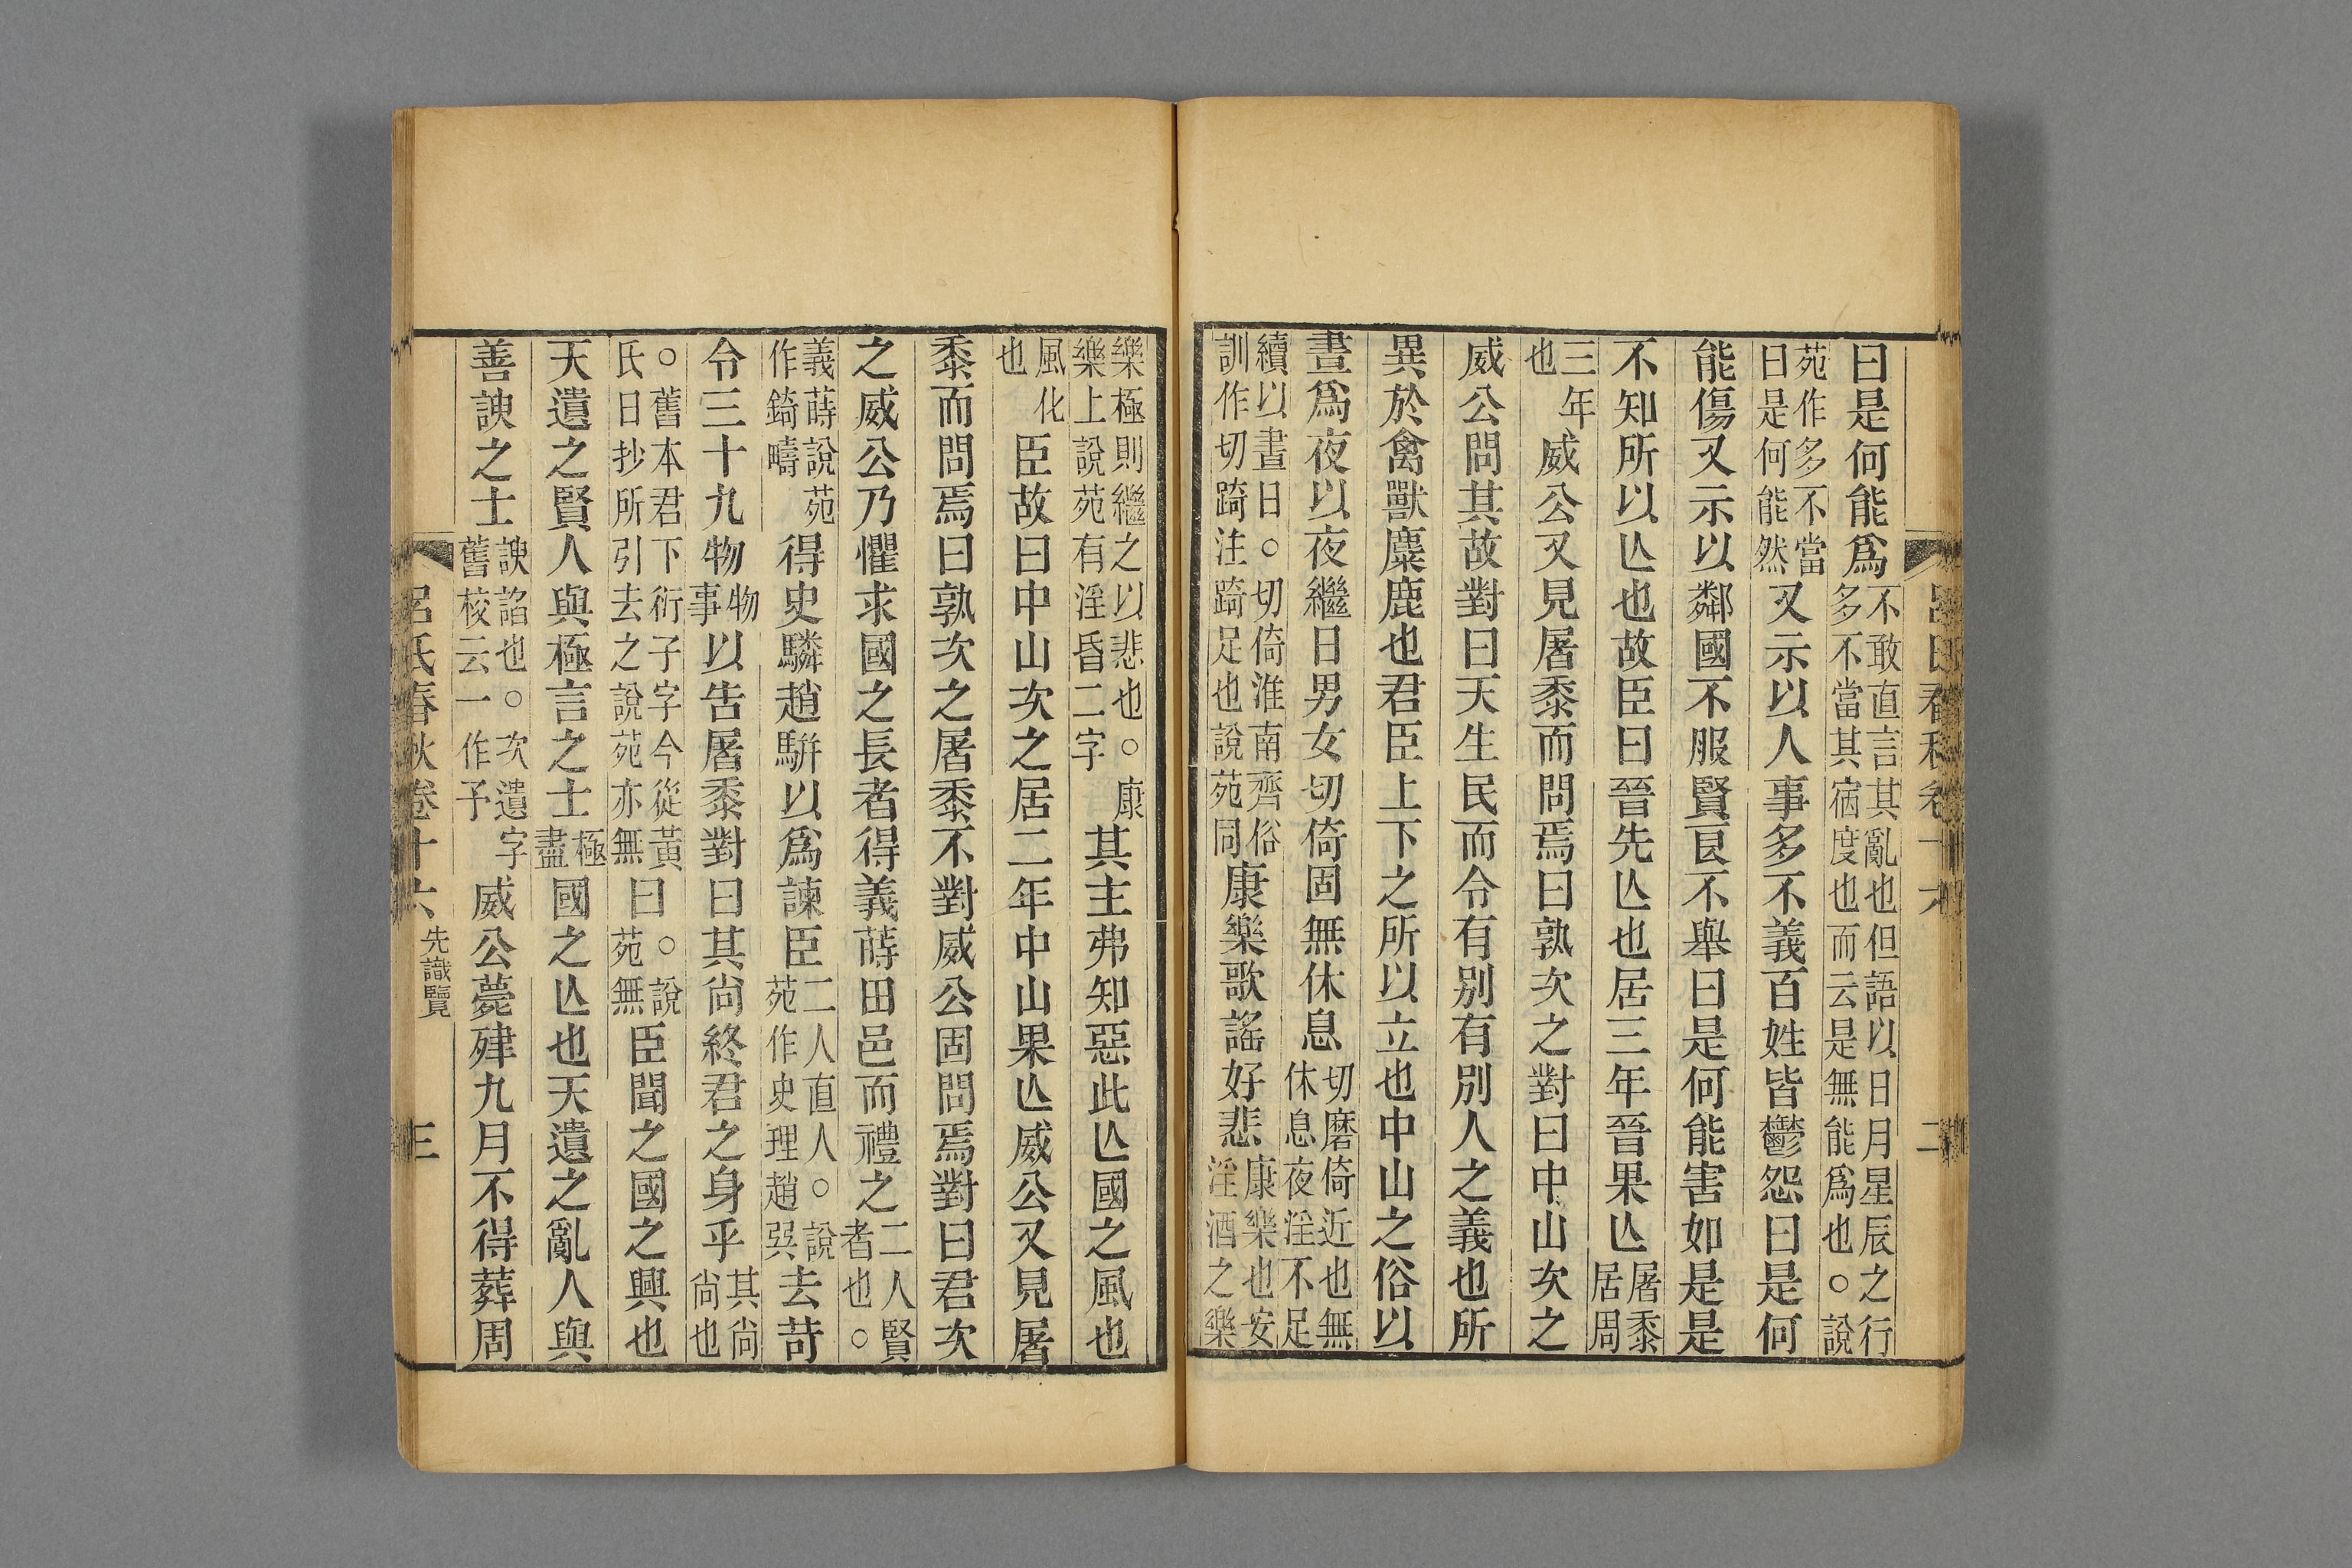 呂氏春秋卷十六 二
曰是何能爲不敢直言其亂也但語以日月星辰之行多不當其宿度也而云是無能爲也○說
苑作多不當曰是何能然又示以人事多不義百姓皆鬱怨曰是何
能傷又示以鄰國不服賢良不舉曰是何能害如是是
不知所以亾也故臣曰晉先亾也居三年晉果亾屠黍居周
三年也威公又見屠黍而問焉曰孰次之對曰中山次之
威公問其故對曰天生民而令有別有別人之義也所
異於禽獸麋鹿也君臣上下之所以立也中山之俗以
晝爲夜以夜繼日男女切倚固無休息切磨倚近也無休息夜淫不足
續以晝日○切倚淮南齊俗訓作切踦注踦足也說苑同康樂歌謠好悲康樂也安淫酒之樂
樂極則繼之以悲也○康樂上說苑有淫昏二字其主弗知惡此亾國之風也
風化也臣故曰中山次之居二年中山果亾威公又見屠
黍而問焉曰孰次之屠黍不對威公固問焉對曰君次
之威公乃懼求國之長者得義蒔田邑而禮之二人賢者也○
義蒔說苑作錡疇得史驎趙駢以爲諫臣二人直人○說苑作史理趙巽去苛
令三十九物物事以告屠黍對曰其尙終君之身乎其尙尙也
○舊本君下衍子字今從黃氏日抄所引去之說苑亦無曰○說苑無臣聞之國之興也
天遺之賢人與極言之士極盡國之亾也天遺之亂人與
善諛之士諛諂也○次遺字舊校云一作予威公薨肂九月不得葬周
呂氏春秋卷十六 先識覽 三